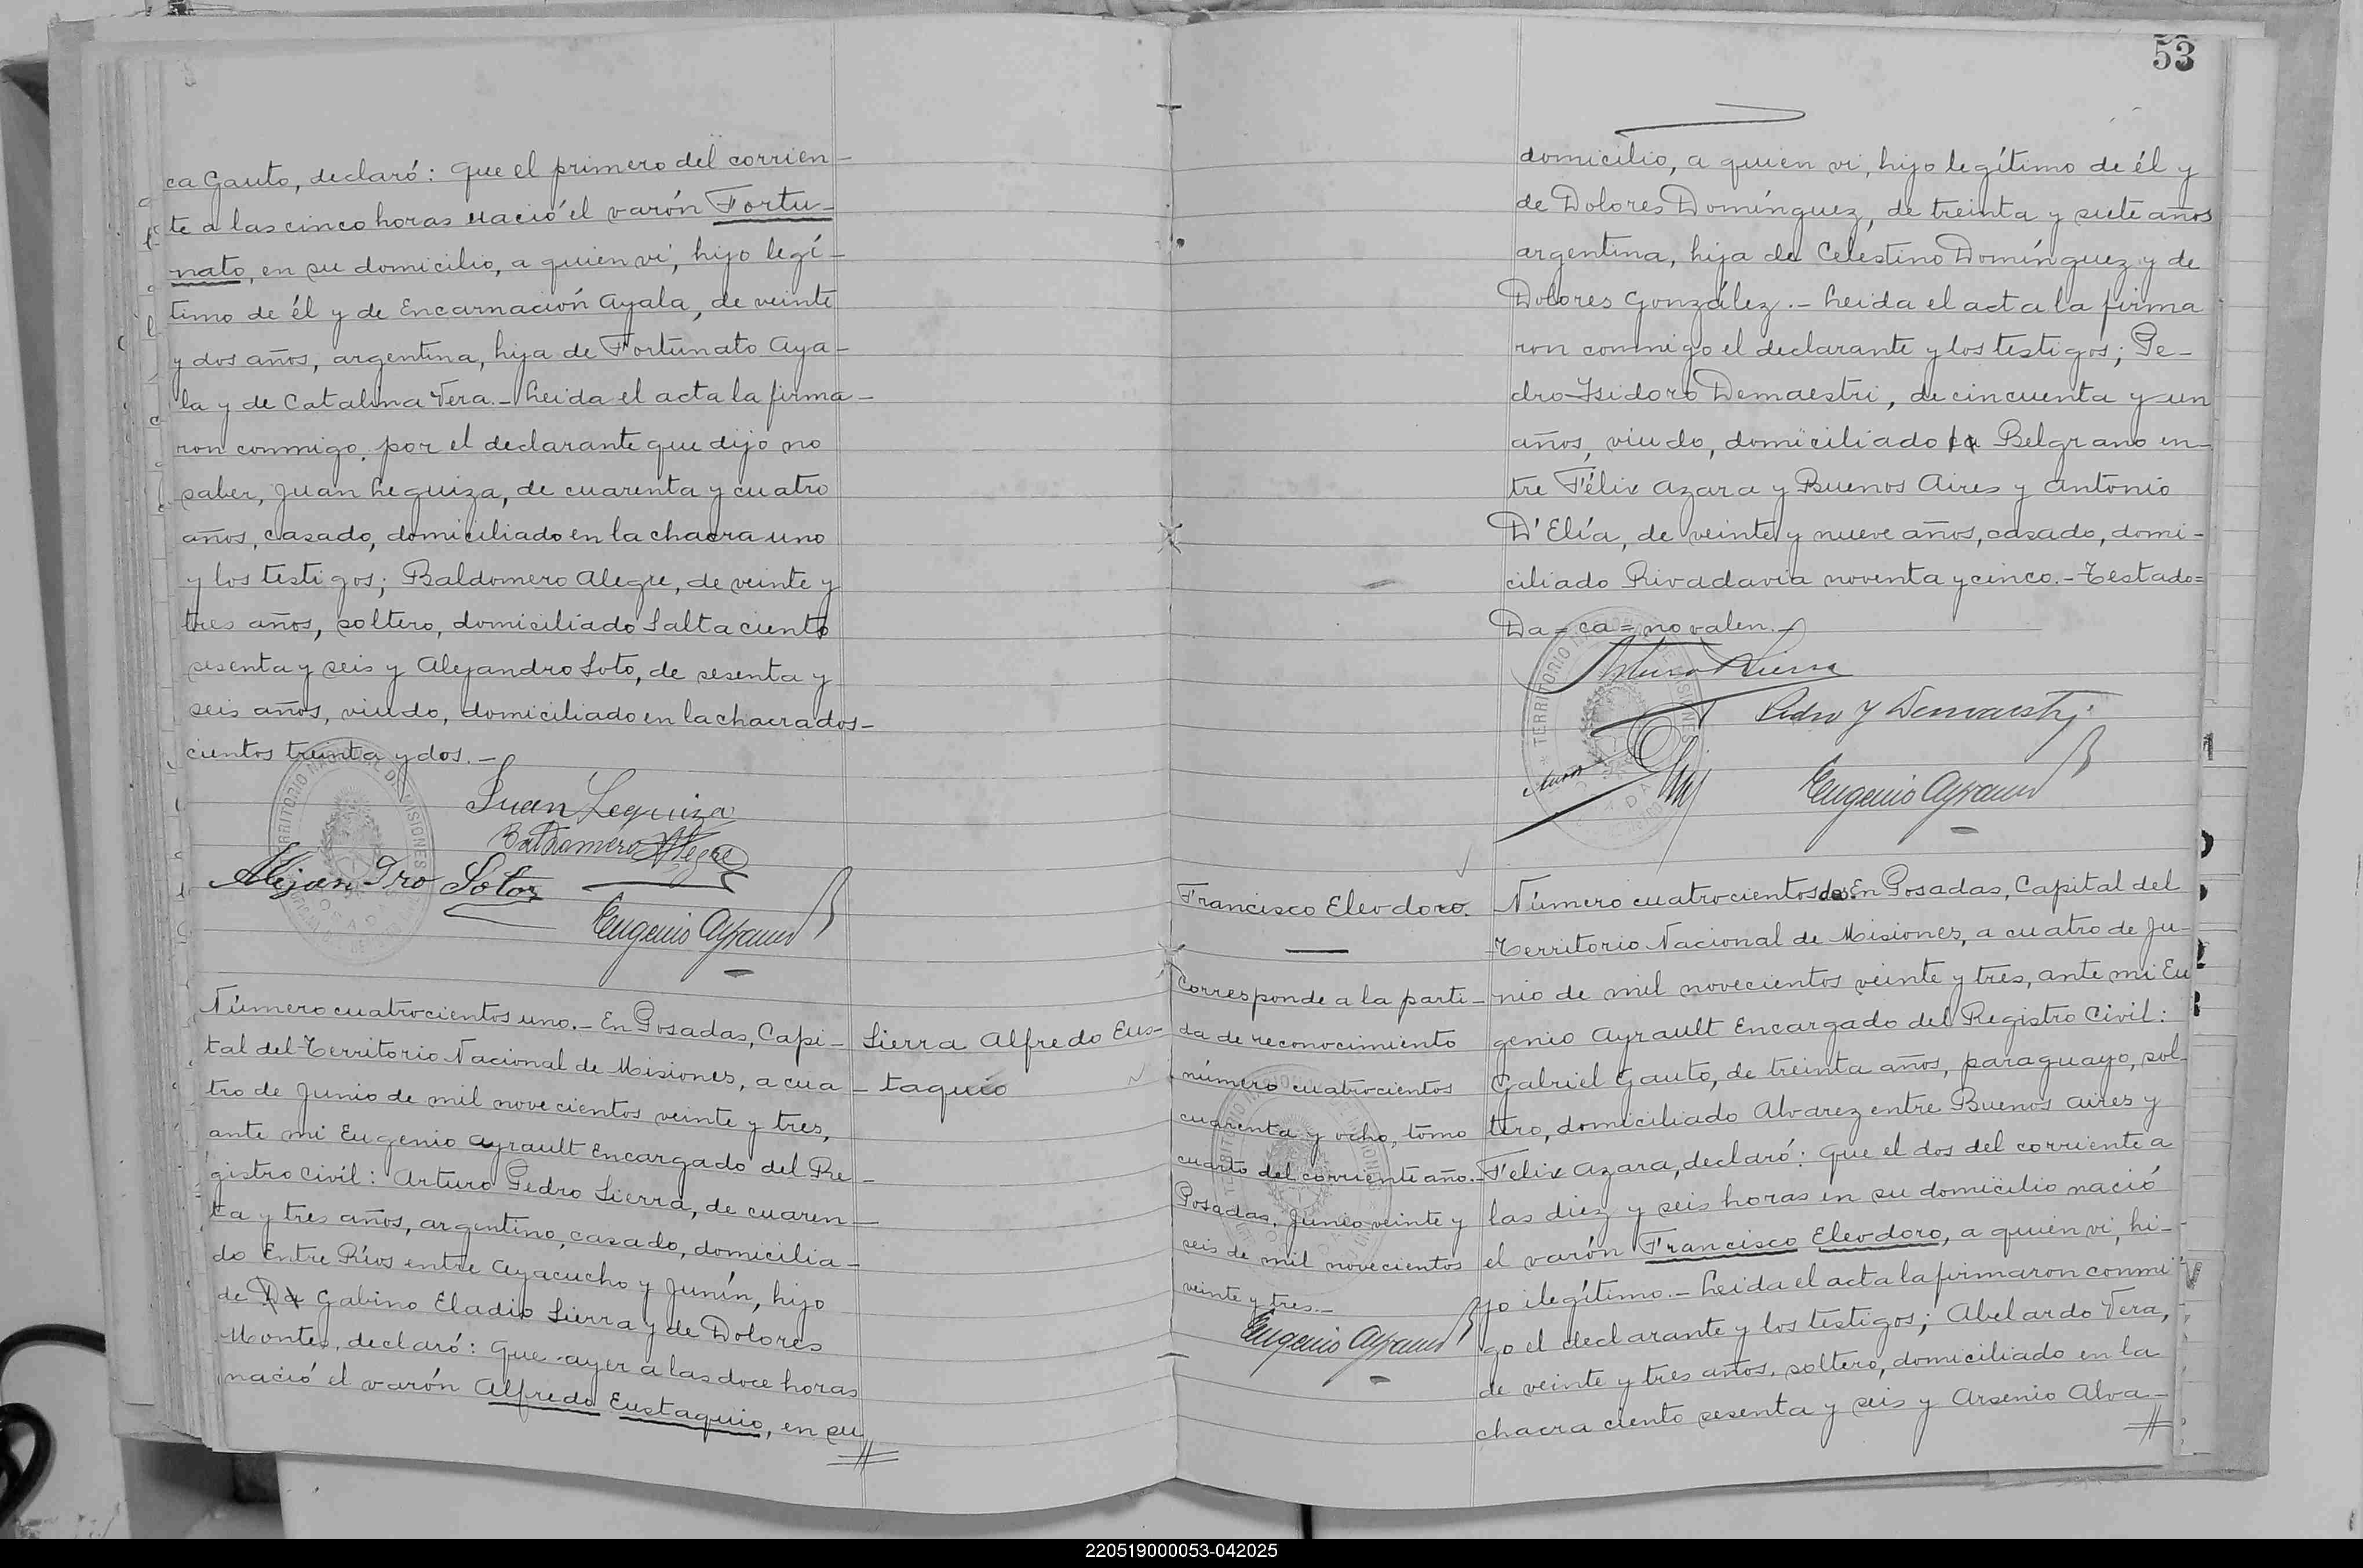 ca Gauto, declaró: Que el primero del corrien-
te a las cinco horas nació el varón Fortu-
nato, en su domicilio, a quien vi, hijo legí-
timo de él y de Encarnación Ayala, de veinte
y dos años, argentina, hija de Fortunato Aya-
la y de Catalina Vera.- Leida el acta la firma-
ron conmigo, por el declarante que dijo no
saber, Juan Leguiza, de cuarenta y cuatro
años, casado, domiciliado en la chacra uno
y los testigos; Baldomero Alegre, de veinte y
tres años, soltero, domiciliado Salta ciento
sesenta y seis y Alejandro Soto, de sesenta y
seis años, viudo, domiciliado en la chacra dos-
cientos treinta y dos.-
Juan Leguiza
Baldomero Alegre
Alejandro Soto
Eugenio Ayrault
Número cuatrocientos uno.- En Posadas, Capi-
tal del Territorio Nacional de Misiones, a cua-
tro de Junio de mil novecientos veinte y tres,
ante mi Eugenio Ayrault Encargado del Re-
gistro Civil: Arturo Pedro Sierra, de cuaren-
ta y tres años, argentino, casado, domicilia-
do Entre Ríos entre Ayacucho y Junín, hijo
de Da Gabino Eladio Sierra y de Dolores
Montes, declaró: Que ayer a las doce horas
nació el varón Alfredo Eustaquio, en su
Sierra Alfredo Eus-
taquio
53
domicilio, a quien vi, hijo legítimo de él y
de Dolores Domínguez, de treinta y siete años
argentina, hija de Celestino Domínguez y de
Dolores González.- Leida el acta la firma
ron conmigo el declarante y los testigos; Pe-
dro Isidoro Demaestri, de cincuenta y un
años, viudo, domiciliado ca Belgrano en-
tre Félix Azara y Buenos Aires y Antonio
D'Elía, de veinte y nueve años, casado, domi-
ciliado Rivadavia noventa y cinco.- Testado=
Da=ca=no valen.-
Arturo Sierra
Pedro Y Demaestri
Eugenio Ayrault
Francisco Eleodoro.
Corresponde a la parti-
da de reconocimiento
número cuatrocientos
cuarenta y ocho, tomo
cuarto del corriente año.-
Posadas, Junio veinte y
seis de mil novecientos
veinte y tres.-
Eugenio Ayrault
Número cuatrocientos dos. En Posadas, Capital del
Territorio Nacional de Misiones, a cuatro de Ju-
nio de mil novecientos veinte y tres, ante mi Eu
genio Ayrault Encargado del Registro Civil:
Gabriel Gauto, de treinta años, paraguayo, sol-
tero, domiciliado Alvarez entre Buenos Aires y
Felix Azara, declaró: Que el dos del corriente a
las diez y seis horas en su domicilio nació
el varón Francisco Eleodoro, a quien vi, hi-
jo ilegítimo.- Leida el acta la firmaron conmi
go el declarante y los testigos; Abelardo Vera,
de veinte y tres años, soltero, domiciliado en la
chacra ciento sesenta y seis y Arsenio Alva-
220519000053-042025